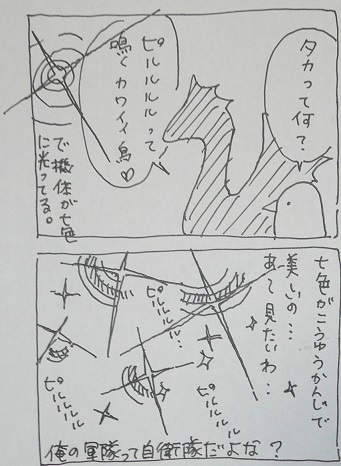 タカって何？
ピルルルルって
鳴くカワイイ鳥♡
で機体が七色
に光ってる。
七色がこうゆうかんじで
美しいの…
あぁ見たいわ…
ピルルルル…
ピルルルル
ピルルルル
俺の軍隊って自衛隊だよな？